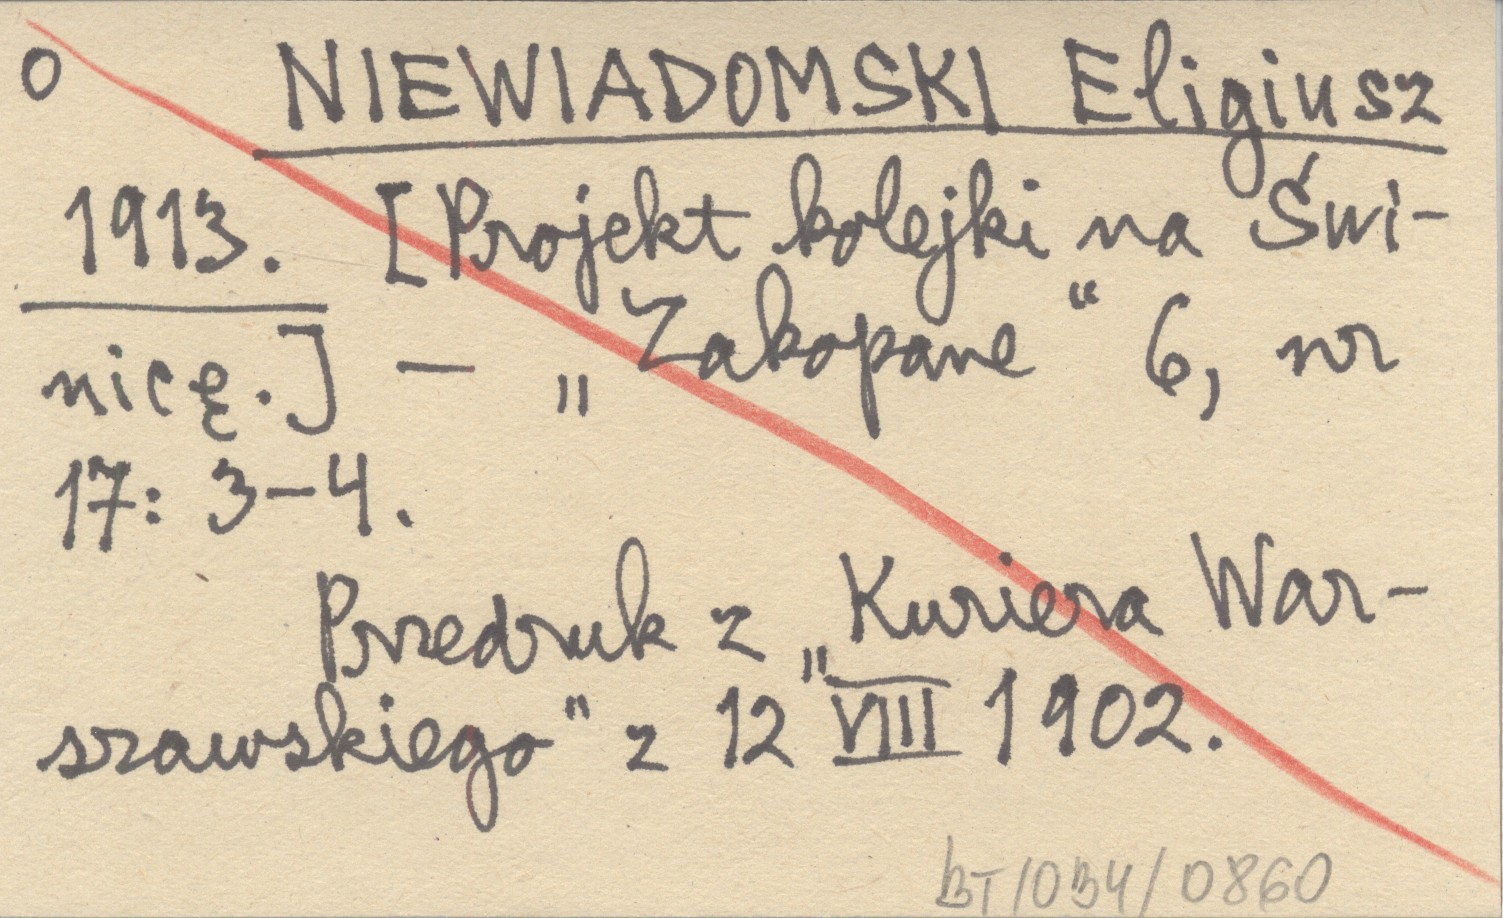 O NIEWIADOMSKI Eligiusz
1913. [Projekt kolejki na Świ-
nicę.] — „Zakopane“ 6, nr
17: 3-4.
Przedruk z „Kuriera War-
szawskiego" z 12 VIII 1902.
BT/OB4/0860